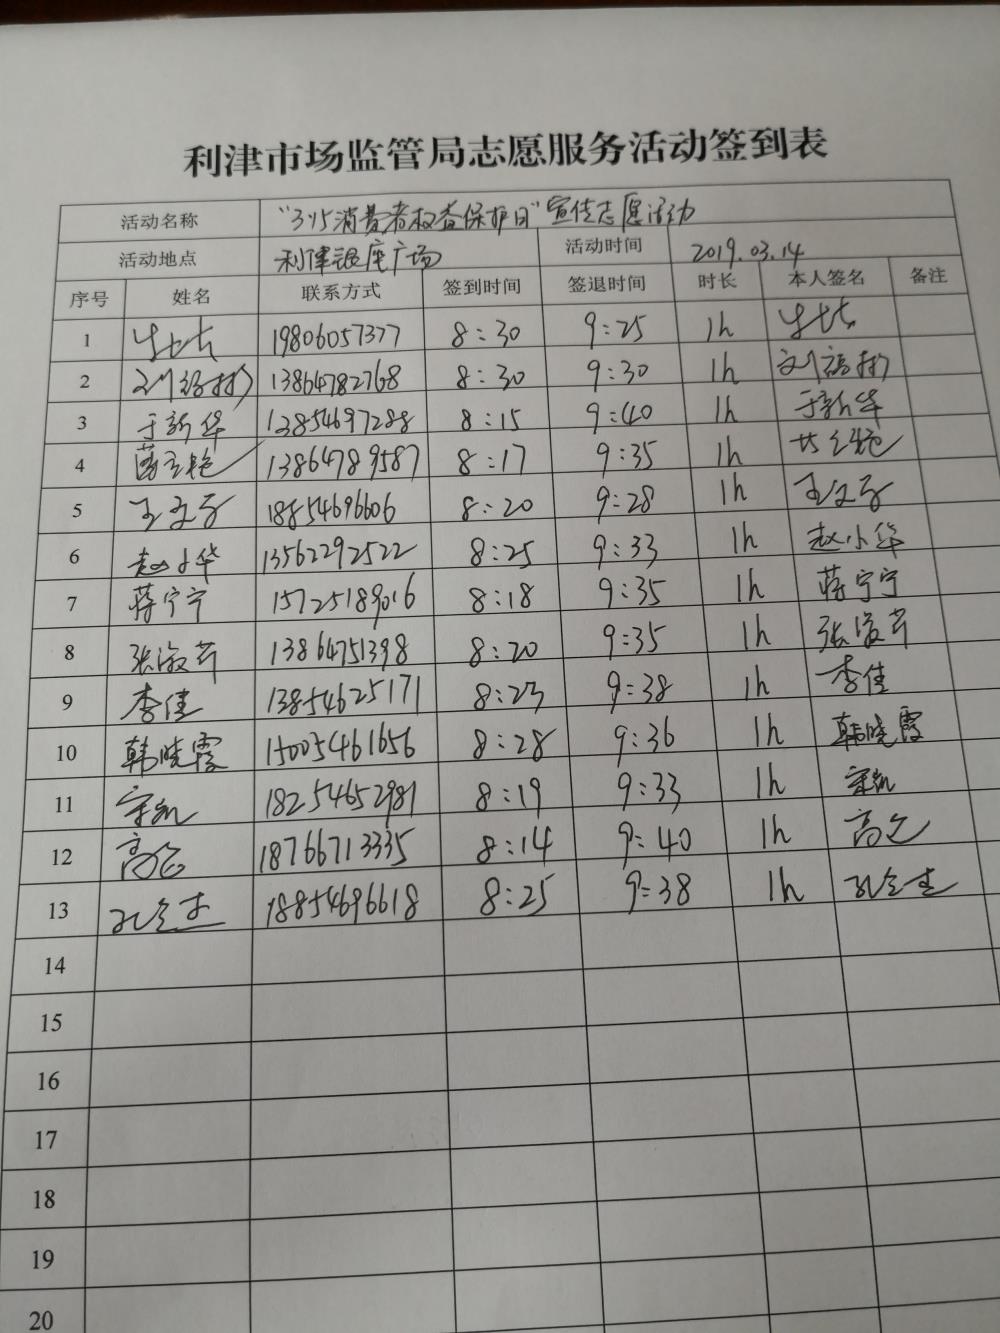 利津市场监管局志愿服务活动签到表
活动名称 "315消费者权益保护日"宣传志愿活动
活动地点 利津银座广场 活动时间 2019.03.14
序号 姓名 联系方式 签到时间 签退时间 时长 本人签名 备注
1 19806057377 8:30 9:25 1h
2 13864782768 8:30 9:30 1h
3 于新华 13854697288 8:15 9:40 1h 于新华
4 13864789587 8:17 9:35 1h
5 王文子 18854696606 8:20 9:28 1h 王文子
6 赵小华 13562292522 8:25 9:33 1h 赵小华
7 蒋宁宁 15725189016 8:18 9:35 1h 蒋宁宁
8 张海芹 13864751398 8:20 9:35 1h 张海芹
9 李佳 13854625171 8:23 9:38 1h 李佳
10 韩晓霞 15005461656 8:28 9:36 1h 韩晓霞
11 宋凯 18254652981 8:19 9:33 1h 宋凯
12 18766713335 8:14 9:40 1h
13 18854696618 8:25 9:38 1h
14
15
16
17
18
19
20